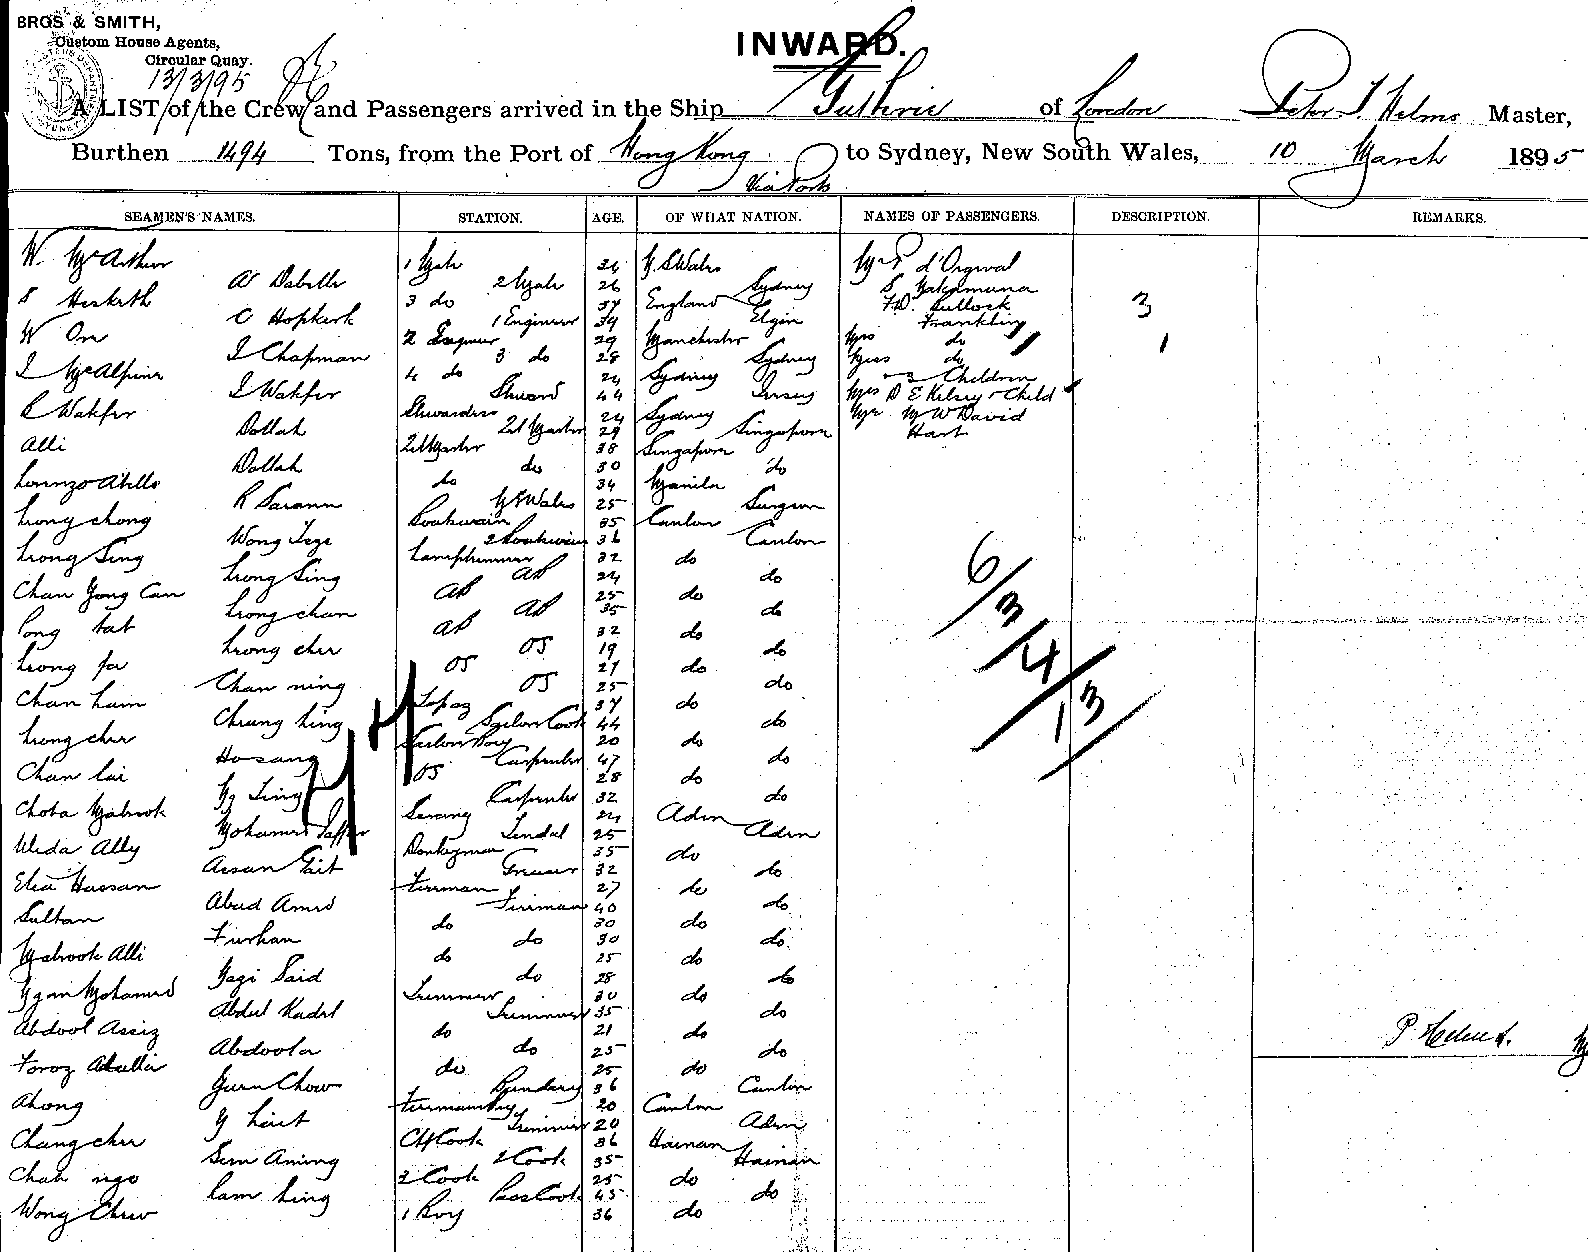 BROS & SMITH,
Custom House Agents,
Circular Quay.
13/3/95
INWARD.
A LIST of the Crew and Passengers arrived in the Ship Guthrie of London Peter T Helms Master,
Burthen 1494 Tons, from the Port of Hong Kong to Sydney, New South Wales, 10 March 1895
Via Ports
SEAMEN'S NAMES. STATION. AGE. OF WHAT NATION. NAMES OF PASSENGERS. DESCRIPTION. REMARKS.
W. McArthur 1 Mate N. S Wales d'Orgeval
2 Mate 26 Sydney S
S Hesketh 3 do 37 England Bullock 3
C Hopkirk 1 Engineer 39 Elgin Franklin
W Orr 2 Engineer 29 Manchester Mrs do 1
J Chapman 3 do 28 Sydney Miss do
J McAlpine 4 do 24 Sydney 3 Children
J Wakfer Steward 44 Jersey Mrs D E Kelsey & Child
R Wakfer Stewardess 24 Sydney Mr M W David
Dollah 29 Singapore Hart
Alli 38 Singapore
Dollah do 30 do
Lorenzo Abello do 34 Manila
N S Wales 25 Surgeon
Leong chong Boatswain 35 Canton
Wong 2 Boatswain 36 Canton
Leong Sing Lamptrimmer 32 do
Leong Sing AB 24 do
Chan Yong Can AB 25 do
Leong chan AB 35 do
Pong tat AB 32 do
Leong cheu OS 19 do
Leong fa OS 27 do
Chan ning OS 25 do
Chan ham 37 do
Cheung hing Saloon Cook 44 do
Leong cheu Saloon Boy 20 do
Ho sang Carpenter 47 do
Chan lai OS 28 do
Ng Ting Carpenter 32 do
Chota Mabrook Serang 24 Aden
Mohamed Jaffer Tendal 25 Aden
Ally Donkeyman 35 do
Assan Greaser 32 do
Elea Hassan Fireman 27 do
Abud Amed Fireman 40 do
Sultan do 30 do
Furhan do 30 do
Mabrook Alli do 25 do
Said do 28 do
Mohamed Trimmer 30 do
Abdul Kadel Trimmer 35 do
Abdool Assiz do 21 do
Abdoola do 25 do
Foroz Abdulla do 25 do
Chow Pundary 36 Canton
Ahong Firemans Boy 20 Canton
Trimmer 20 Aden
Chang cheu Ch Cook 36 Hainan
Sem Aming 2 Cook 35 Hainan
Chak ngo 2 Cook 25 do
Lam hing Pass Cook 45 do
Wong Chew 1 Boy 36 do
6/3/4/13
P Helms.